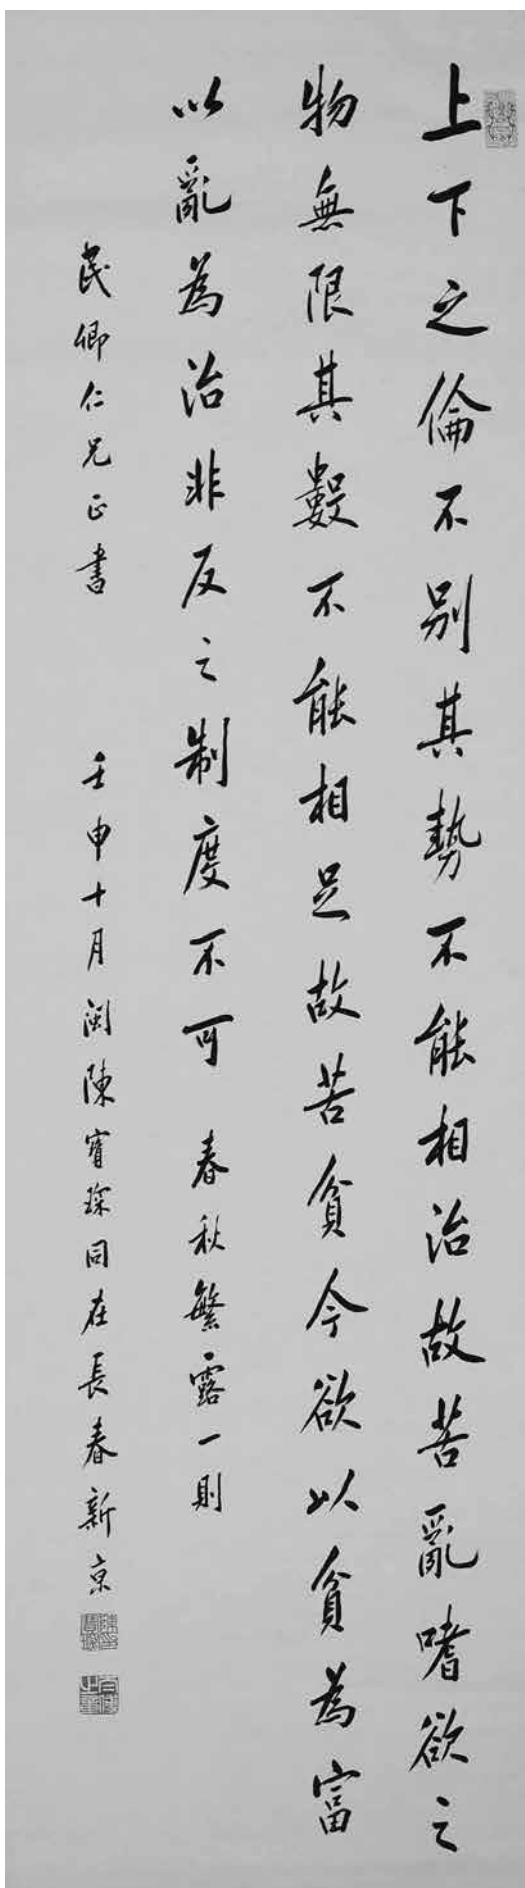 上下之倫不別其勢不能相治故苦亂嗜欲之
物無限其數不能相足故苦貧今欲以貧為富
以亂為治非反之制度不可 春秋繁露一則
民卿仁兄正書 壬申十月閩陳寶琛同在長春新京